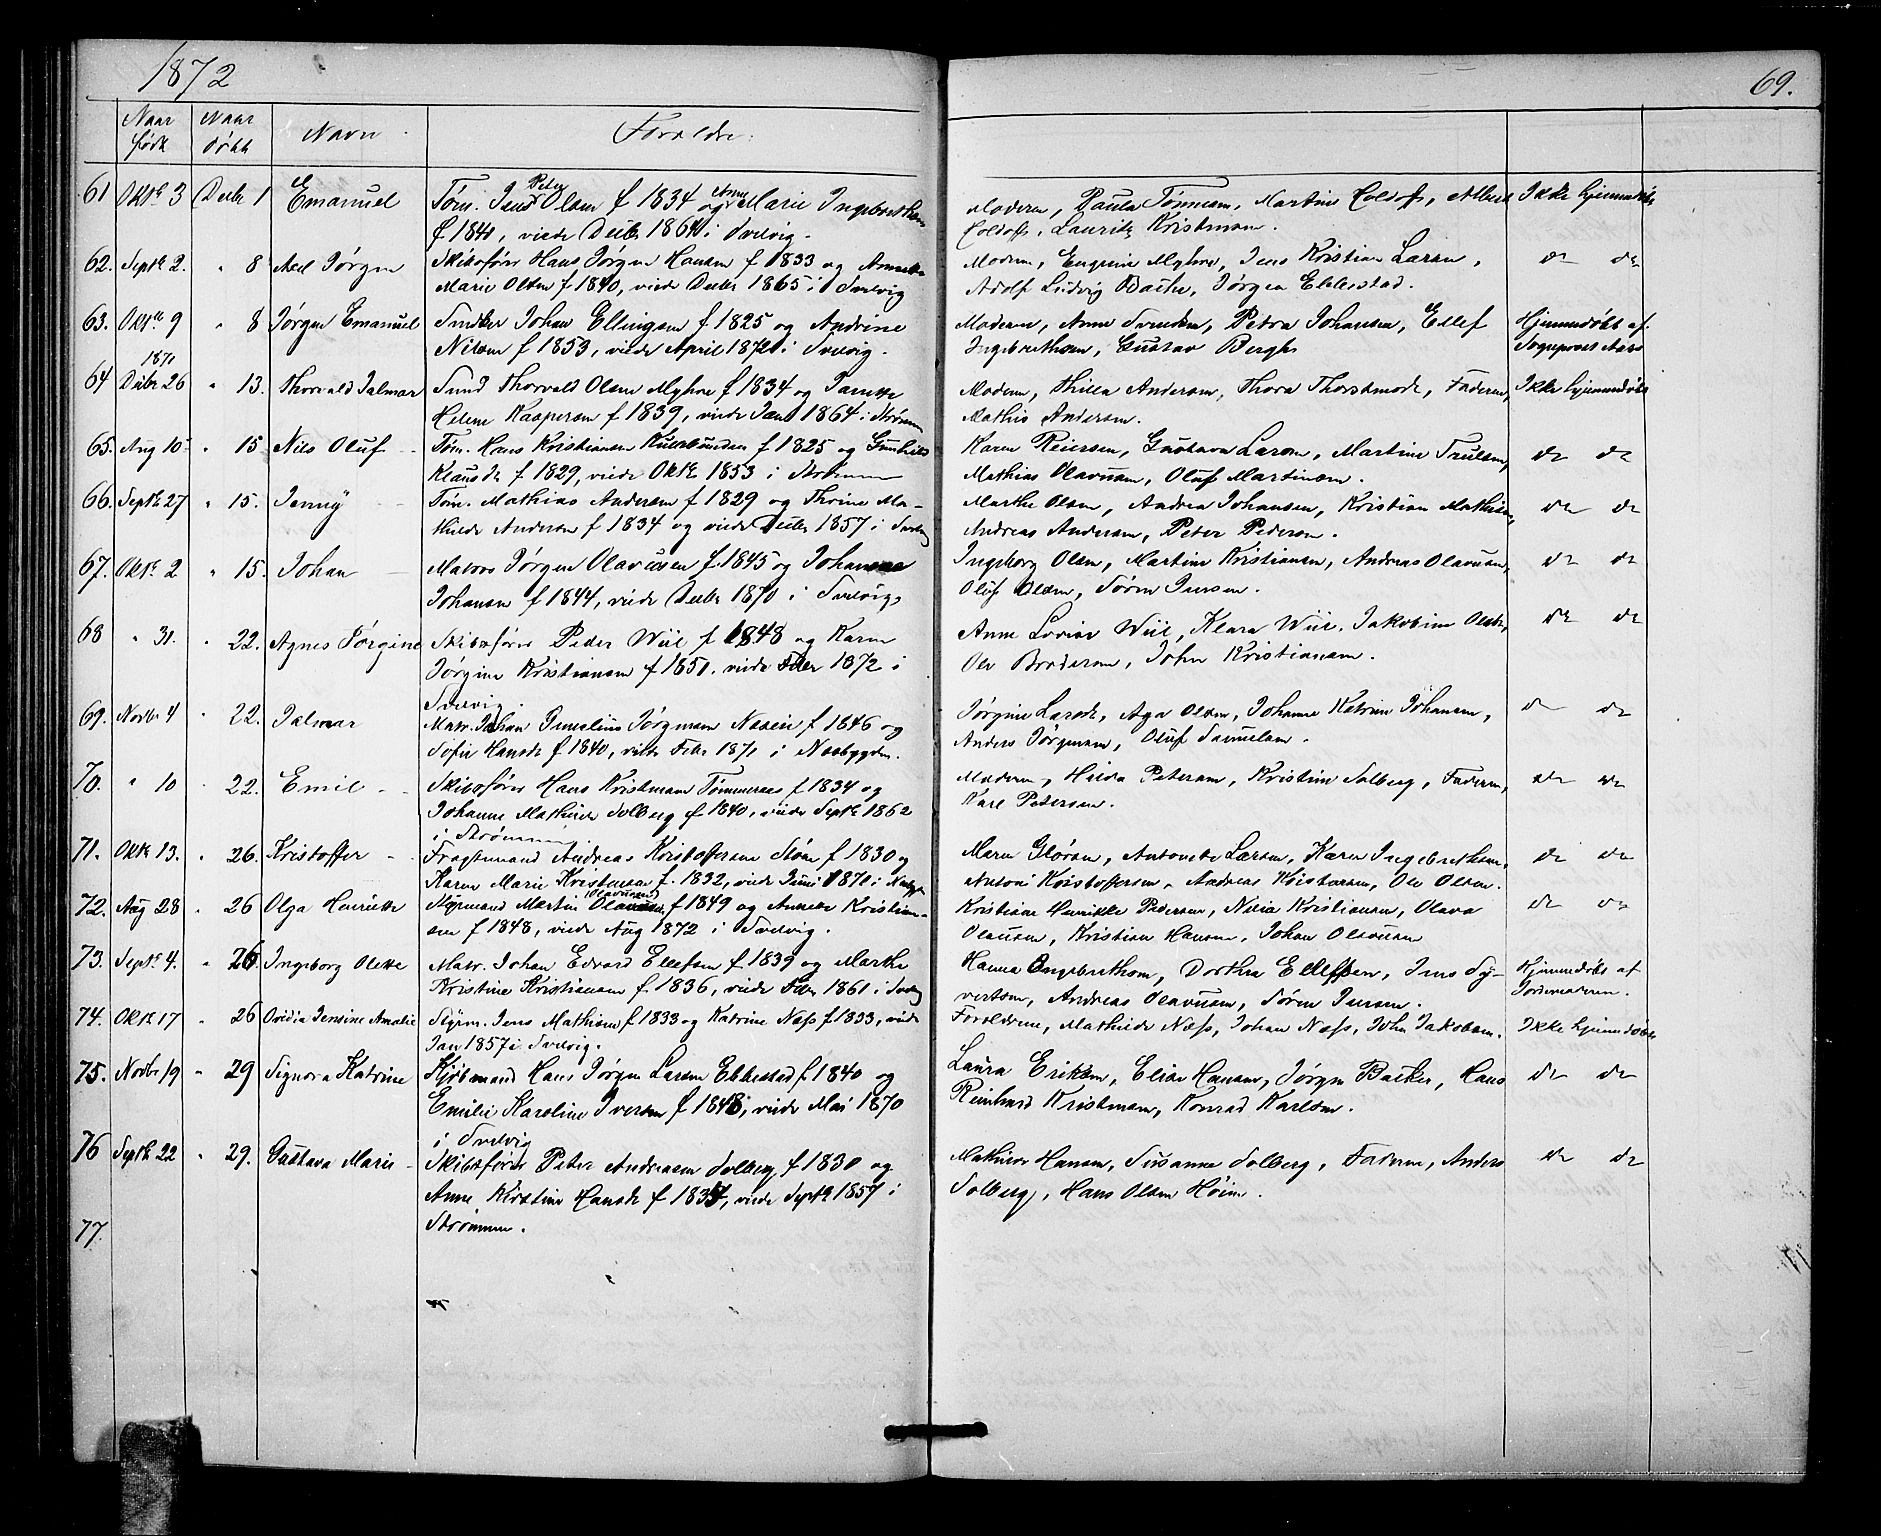 1872
69.
Naar født
Naar døbt
Navn
Forældre.
61 Oktr 3 Decbr 1 Emanuel Tøm. Jens Peter Olsen f 1834 og Anne Marie Ingebrethsen
f 1840, viede Decbr 1864 i Svelvig.
Moderen, Paula Tønnesen, Martine Coldoff, Albert
Coldoff, Lauritz Kristensen.
Ikke hjemmedøbt
62. Septbr 2. " 8 Axel Jørgen Skibsfører Hans Jørgen Hansen f 1833 og Annette
Marie Olsen f 1840, viede Decbr 1865 i Svelvig
Moderen, Eugenie Myhre, Jens Kristian Larsen,
Adolf Ludvig Bache, Jørgen Ebbestad.
do do
63. Oktbr 9 " 8 Jørgen Emanuel Snedker Johan Ellingsen f. 1825 og Andrine
Nilsen f 1853, viede April 1872 i Svelvig.
Moderen, Anne Svendsen, Petra Johansen, Ellef
Ingebrethsen, Gustav Bergh
Hjemmedøbt af
Sogneprest Aars
64 1871 Decbr 26 " 13. Thorvald Jalmar Smed Thorvald Olsen Myhre f 1834 og Janette
Helene Kaspersen f 1839, viede Jan 1864 i Strømmen
Moderen, Thilla Andersen, Thora Thorstensdr, Faderen,
Mathis Andersen.
Ikke hjemmedøbt
65. Aug 10 " 15 Nils Oluf Tøm. Hans Kristiansen f 1825 og Gunhild
Klausdr f 1829, viede Oktbr 1853 i Strømmen
Karen Reiersen, Gustava Larsen, Martine Trulsen,
Mathias Olavesen, Oluf Martinsen.
do do
66. Septbr 27 " 15. Jenny Tøm. Mathias Andersen f 1829 og Thrine Ma-
thilde Andersen f 1834 og viede Decbr 1857 i Svelvig
Marthe Olsen, Andrea Johansen, Kristian Mathisen,
Andreas Andersen, Peter Pedersen.
do do
67. Oktbr 2 " 15. Johan Matros Jørgen Olavesen f. 1845 og Johanne
Johansen f 1844, viede Decbr 1870 i Svelvig
Ingeborg Olsen, Martine Kristiansen, Andreas Olavesen,
Oluf Olsen, Søren Iversen.
do do
68 " 31. " 22. Agnes Jørgine Skibsfører Peder Wiil f 1848 og Karen
Jørgine Kristiansen f 1850. viede Febr 1872 i
Svelvig.
Anne Lovise Wiil, Klara Wiil, Jakobine Olsen,
Ole Brodersen, John Kristiansen.
do do
69. Novbr 4 " 22. Jalmar Matr. Johan Jørgensen Næseie f 1846 og
Sofie Hansdr f. 1840, viede Febr 1871 i Nesbygden.
Jørgine Larsdr, Aga Olsen, Johanne Katrine Johansen,
Anders Jørgensen, Oluf Samuelsen.
do do
70. " 10 " 22. Emil Skibsfører Hans Kristensen Tømmeraas f 1834 og
Johanne Mathilde Solberg f 1840, viede Septbr 1862
i Strømmen
Moderen, Hilda Petersen, Kristine Solberg, Faderen,
Karl Petersen.
do do
71. Oktbr 13. " 26. Kristoffer Fragtemand Andreas Kristoffersen Støa f 1830 og
Karen Marie Kristensen f. 1832, viede Juni 1871 i Nesbygden
Maren Gløersen, Antonette Larsen, Karen Ingebrethsen,
Antoni Kristoffersen, Andreas Kristensen, Ole Olsen.
do do
72. Aug 28 " 26 Olga Henriette Styrmand Martin Olavesen f 1849 og Annette Kristian-
sen f 1848, viede Aug 1872 i Svelvig.
Kristiane Henrikke Pedersen, Nilia Kristiansen, Olava
Olausen, Kristian Hansen, Johan Olavesen
do do
73. Septbr 4. " 26 Ingeborg Olette Matr. Johan Edvard Ellefsen f 1839 og Marthe
Kristine Kristiansen f. 1836, viede Febr 1861 i Svelvig
Hanna Ingebrethsen, Dorthea Ellefsen, Jens Sy-
vertsen, Andreas Olavesen, Søren Iversen.
Hjemmedøbt af
Jordemoderen.
74. Oktbr 17 " 26 Ovidia Jensine Amalie Styrm. Jens Mathisen f 1833 og Katrine Næss f 1833, viede
Jan 1857 i Svelvig.
Forældrene, Mathilde Næss, Johan Næss, John Jakobsen.
Ikke hjemmedøbt
75. Novbr 19 " 29 Signora Katrine Kjøbmand Hans Jørgen Larsen Ebbestad f. 1840 og
Emilie Karoline Iversen f 1848, viede Mai 1870
i Svelvig
Laura Eriksen, Elise Hansen, Jørgen Backer, Hans
Reinhard Kristensen, Konrad Karlsen.
do do
76 Septbr 22 " 29. Gustava Marie Skibsfører Peter Andreasen Solberg f. 1830 og
Anne Kirstine Hansdr f 1837, viede Septbr 1857 i
Strømmen.
Mathilde Hansen, Susanne Solberg, Faderen, Anders
Solberg, Hans Olsen Høien.
do do
77.